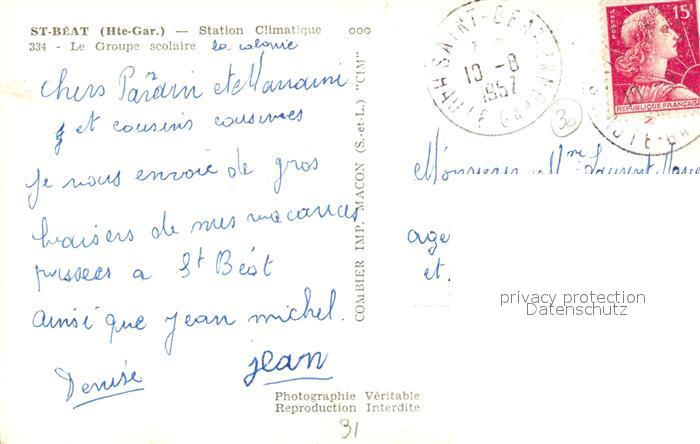 ST-BÉAT (Hte-Gar.) — Station Climatique
334 - Le Groupe scolaire la colonie
chers Parain et Marraine
et cousins cousines
Je vous envoie de gros
baisers de mes vacances
passees a St Béat
ainsi que jean michel.
Denise jean
Photographie Véritable
Reproduction Interdite
31
COMBIER IMP. MACON (S.-et-L.) "CIM"
SAINT-BÉAT
10 -8
1957
HTE GARONNE
30
15F
REPUBLIQUE FRANÇAISE
Monsieur Mme Laurent
age
et.
privacy protection
Datenschutz